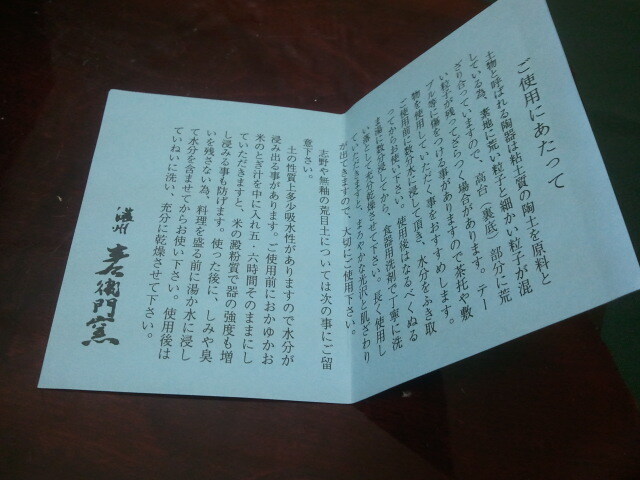 ご使用にあたって
土物と呼ばれる陶器は粘土質の陶土を原料と
している為、素地に荒い粒子と細かい粒子が混
ざり合っていますので、高台（裏底）部分に荒
い粒子が残ってざらつく場合があります。テー
ブル等に傷をつける事がありますので茶托や敷
物を使用していただく事をおすすめします。
ご使用前に数分水に浸して頂き、水分をふき取
ってからお使い下さい。使用後はなるべくぬる
ま湯に数分浸してから、食器用洗剤で丁寧に洗
い落とし充分乾燥させて下さい。長く使用し
ていただきますと、まろやかな光沢と肌ざわり
が出てきますので、大切にご使用下さい。
志野や無釉の荒目土については次の事にご留
意下さい。
土の性質上多少吸水性がありますので水分が
浸み出る事があります。ご使用前におかゆかお
米のとぎ汁を中に入れ五・六時間そのままにし
ていただきますと、米の澱粉質で器の強度も増
し浸みる事も防げます。使った後に、しみや臭
いを残さない為、料理を盛る前に湯か水に浸し
て水分を含ませてからお使い下さい。使用後は
ていねいに洗い、充分に乾燥させて下さい。
衛門窯